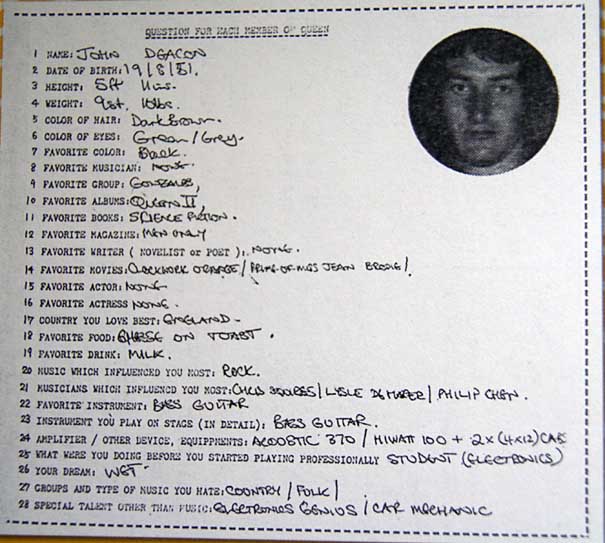 QUESTION FOR EACH MEMBER OF QUEEN
1 NAME: JOHN DEACON
2 DATE OF BIRTH: 19/8/51.
3 HEIGHT: 5ft 11ins.
4 WEIGHT: 9st. 10lbs.
5 COLOR OF HAIR: Dark Brown.
6 COLOR OF EYES: Green/Grey.
7 FAVORITE COLOR: Black.
8 FAVORITE MUSICIAN: NONE.
9 FAVORITE GROUP: GONZALES,
10 FAVORITE ALBUMS: QUEEN II,
11 FAVORITE BOOKS: SCIENCE FICTION.
12 FAVORITE MAGAZINE: MEN ONLY
13 FAVORITE WRITER ( NOVELIST or POET ): NONE.
14 FAVORITE MOVIES: CLOCKWORK ORANGE/ PRIME OF MISS JEAN BRODIE/.
15 FAVORITE ACTOR: NONE
16 FAVORITE ACTRESS NONE.
17 COUNTRY YOU LOVE BEST: ENGLAND.
18 FAVORITE FOOD: CHEESE ON TOAST.
19 FAVORITE DRINK: MILK.
20 MUSIC WHICH INFLUENCED YOU MOST: ROCK.
21 MUSICIANS WHICH INFLUENCD YOU MOST: CHRIS SQUIRES/ / PHILIP CHEN.
22 FAVORITE INSTRUMENT: BASS GUITAR
23 INSTRUMENT YOU PLAY ON STAGE (IN DETAIL): BASS GUITAR.
24 AMPLIFIER / OTHER DEVICE, EQUIPPMENTS: ACOUSTIC 370 / HIWATT 100 + 2x(4x12)CAB
25 WHAT WERE YOU DOING BEFORE YOU STARTED PLAYING PROFESSIONALLY STUDENT (ELECTRONICS)
26 YOUR DREAM: WET
27 GROUPS AND TYPE OF MUSIC YOU HATE: COUNTRY / FOLK/
28 SPECIAL TALENT OTHER THAN MUSIC: ELECTRONICS GENIUS / CAR MECHANIC